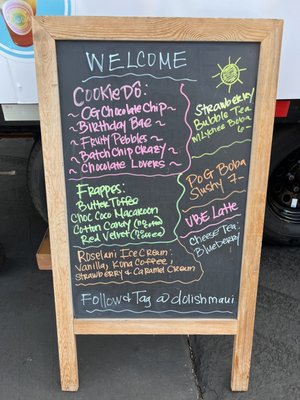 WELCOME
COOKIE DŌ:
~ OG Chocolate Chip ~
~ Birthday Bae ~
~ Fruity Pebbles ~
~ Batch Chip Crazy ~
~ Chocolate Lovers ~
Strawberry
Bubble Tea
w/Lychee Boba
6-
FRAPPES:
Butter Toffee
Choc Coco Macaroon
Cotton Candy
Red Velvet
POG Boba
Slushy 7-
UBE LATTE
CHEESE TEA:
BLUEBERRY
Roselani Ice Cream:
Vanilla, Kona Coffee,
Strawberry & Caramel Cream
Follow & Tag @dolishmaui